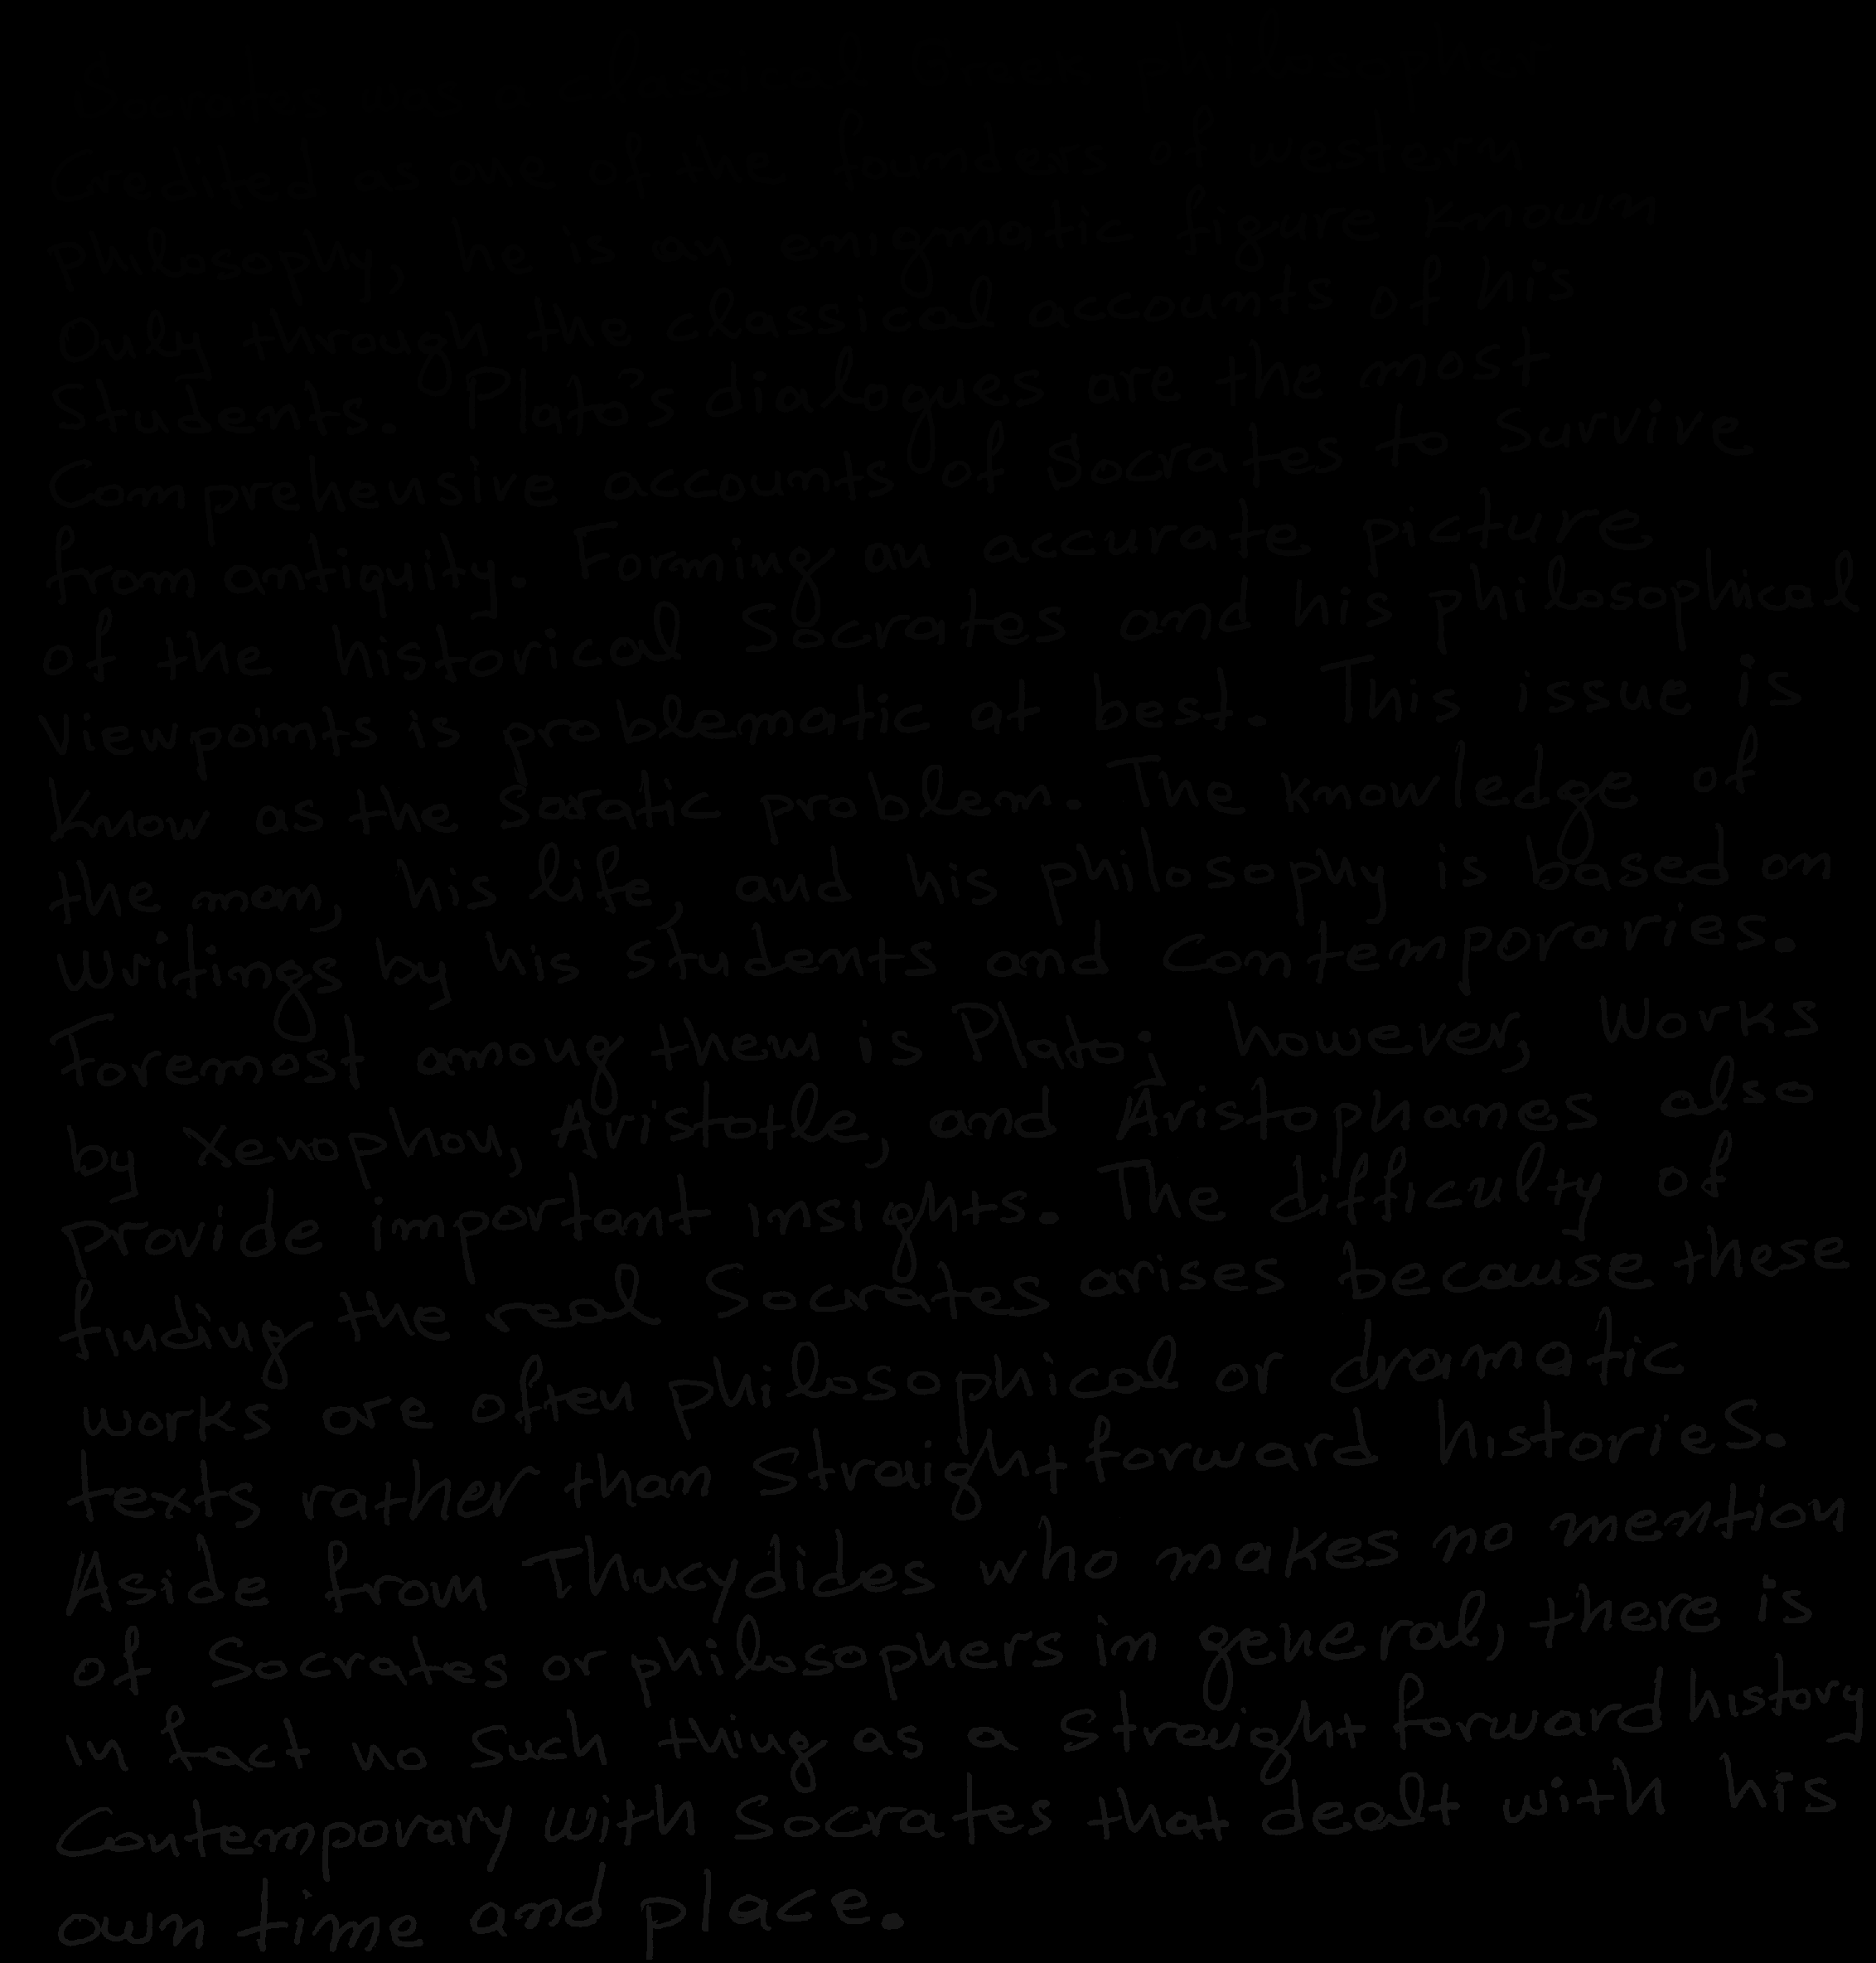 Socrates was a classical Greek philosopher
Credited as one of the founders of western
philosophy, he is an enigmatic figure known
Only through the classical accounts of his
Students. Plato's dialogues are the most
Comprehensive accounts of Socrates to Survive
from antiquity. Forming an accurate picture
of the historical Socrates and his philosophical
Viewpoints is problematic at best. This issue is
Know as the Socratic problem. The knowledge of
the man, his life, and his philosophy is based on
Writings by his students and Contemporaries.
Foremost among them is Plato; however, Works
by Xenophon, Aristotle, and Aristophanes also
provide important insights. The difficulty of
finding the real Socrates arises because these
works are often philosophical or dramatic
texts rather than Straightforward histories.
Aside from Thucydides who makes no mention
of Socrates or philosophers in general, there is
in fact no such thing as a Straight forward history
Contemporary with Socrates that dealt with his
own time and place.